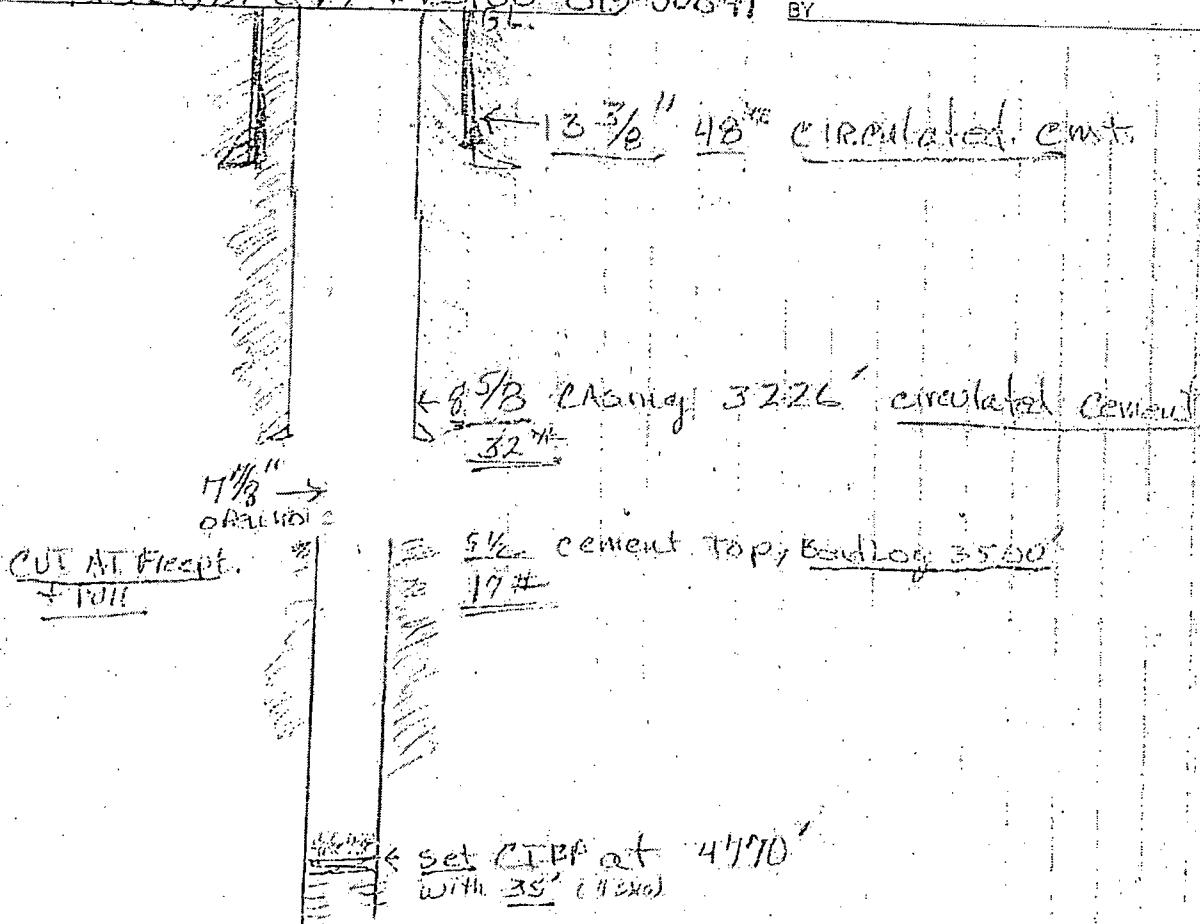 BY
13 3/8" 48# CIRCulated. Cmt.
8 5/8 CAsing 3226' circulated Cement
32#
7 7/8"
CUT AT Freept.
+ Pull
5 1/2 cement Top, BondLog 3500'
17#
set CIBP at 4770'
with 35'